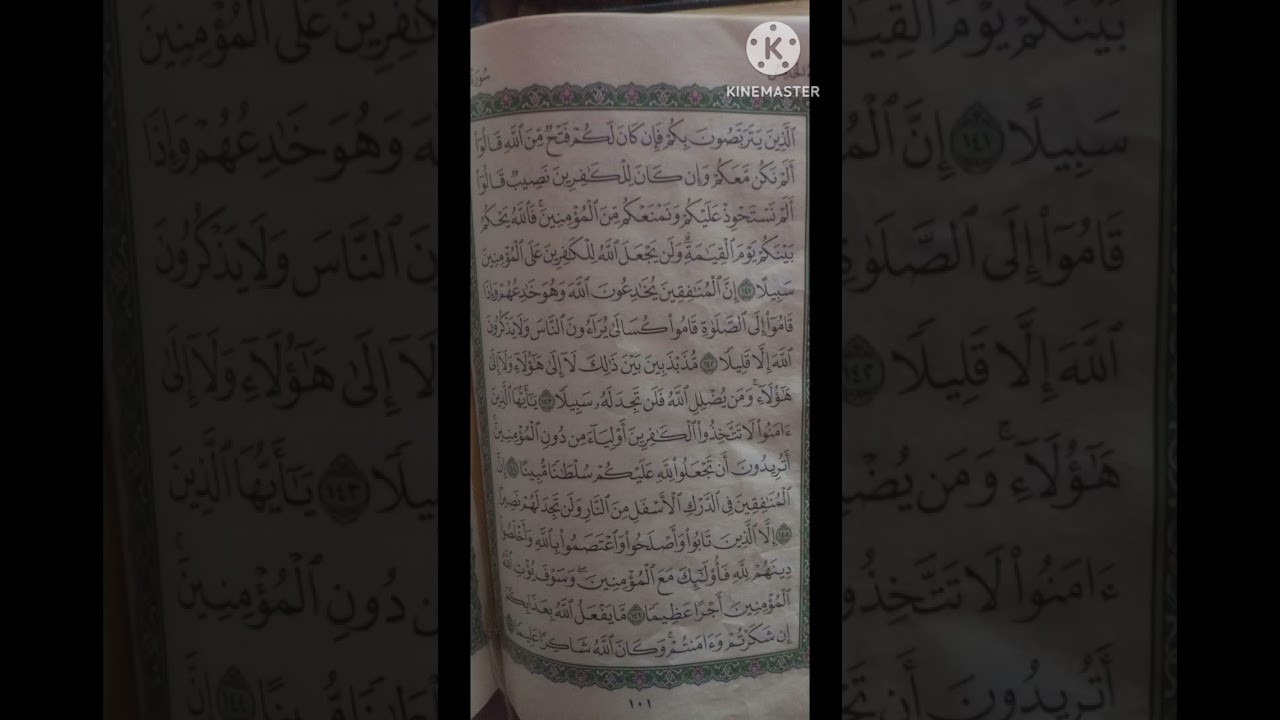 KINEMASTER
سُورَة
ٱلَّذِينَ يَتَرَبَّصُونَ بِكُمْ فَإِن كَانَ لَكُمْ فَتْحٌ مِّنَ ٱللَّهِ قَالُوٓا۟
أَلَمْ نَكُن مَّعَكُمْ وَإِن كَانَ لِلْكَٰفِرِينَ نَصِيبٌ قَالُوٓا۟
أَلَمْ نَسْتَحْوِذْ عَلَيْكُمْ وَنَمْنَعْكُم مِّنَ ٱلْمُؤْمِنِينَ ۚ فَٱللَّهُ يَحْكُمُ
بَيْنَكُمْ يَوْمَ ٱلْقِيَٰمَةِ ۗ وَلَن يَجْعَلَ ٱللَّهُ لِلْكَٰفِرِينَ عَلَى ٱلْمُؤْمِنِينَ
سَبِيلًا ١٤١ إِنَّ ٱلْمُنَٰفِقِينَ يُخَٰدِعُونَ ٱللَّهَ وَهُوَ خَٰدِعُهُمْ وَإِذَا
قَامُوٓا۟ إِلَى ٱلصَّلَوٰةِ قَامُوا۟ كُسَالَىٰ يُرَآءُونَ ٱلنَّاسَ وَلَا يَذْكُرُونَ
ٱللَّهَ إِلَّا قَلِيلًا ١٤٢ مُّذَبْذَبِينَ بَيْنَ ذَٰلِكَ لَآ إِلَىٰ هَٰٓؤُلَآءِ وَلَآ إِلَىٰ
هَٰٓؤُلَآءِ ۚ وَمَن يُضْلِلِ ٱللَّهُ فَلَن تَجِدَ لَهُۥ سَبِيلًا ١٤٣ يَٰٓأَيُّهَا ٱلَّذِينَ
ءَامَنُوا۟ لَا تَتَّخِذُوا۟ ٱلْكَٰفِرِينَ أَوْلِيَآءَ مِن دُونِ ٱلْمُؤْمِنِينَ ۚ
أَتُرِيدُونَ أَن تَجْعَلُوا۟ لِلَّهِ عَلَيْكُمْ سُلْطَٰنًا مُّبِينًا ١٤٤ إِنَّ
ٱلْمُنَٰفِقِينَ فِى ٱلدَّرْكِ ٱلْأَسْفَلِ مِنَ ٱلنَّارِ وَلَن تَجِدَ لَهُمْ نَصِيرًا
١٤٥ إِلَّا ٱلَّذِينَ تَابُوا۟ وَأَصْلَحُوا۟ وَٱعْتَصَمُوا۟ بِٱللَّهِ وَأَخْلَصُوا۟
دِينَهُمْ لِلَّهِ فَأُو۟لَٰٓئِكَ مَعَ ٱلْمُؤْمِنِينَ ۖ وَسَوْفَ يُؤْتِ ٱللَّهُ
ٱلْمُؤْمِنِينَ أَجْرًا عَظِيمًا ١٤٦ مَّا يَفْعَلُ ٱللَّهُ بِعَذَابِكُمْ
إِن شَكَرْتُمْ وَءَامَنتُمْ ۚ وَكَانَ ٱللَّهُ شَاكِرًا عَلِيمًا
١٠١